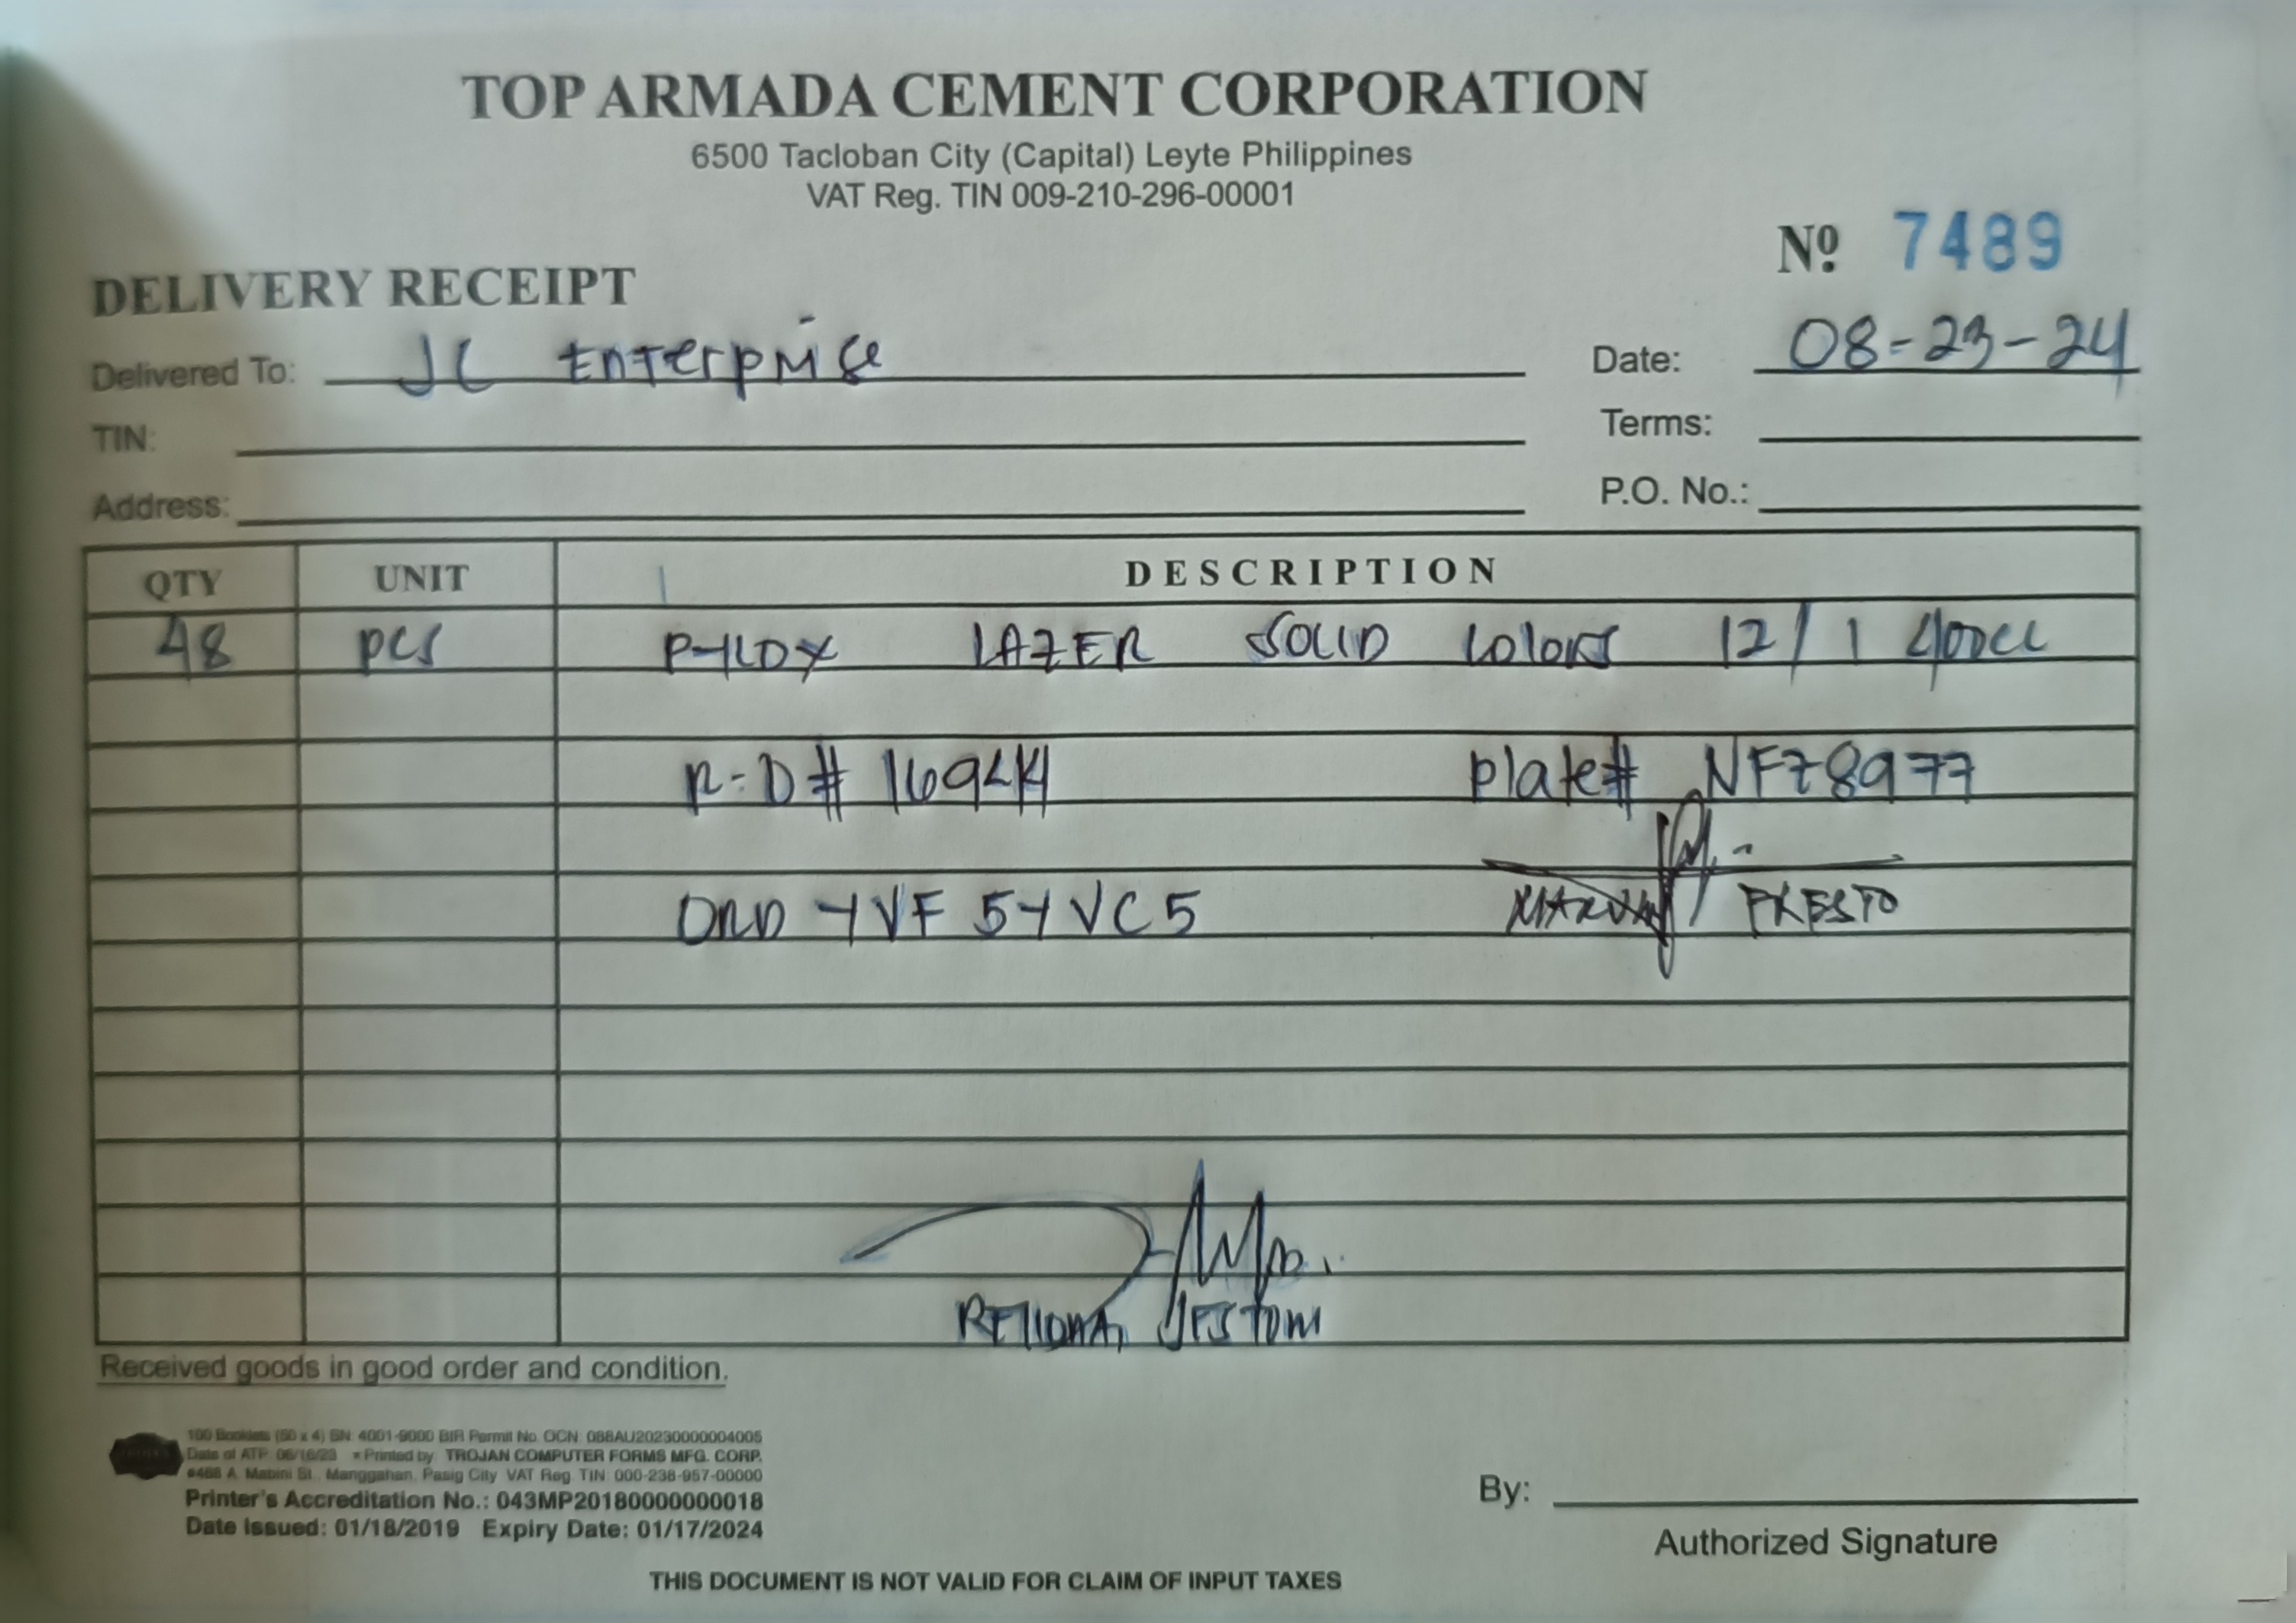 TOP ARMADA CEMENT CORPORATION
6500 Tacloban City (Capital) Leyte Philippines
VAT Reg. TIN 009-210-296-00001
Nº 7489
DELIVERY RECEIPT
Delivered To: JC Enterprise
Date: 08-23-24
TIN:
Terms:
Address:
P.O. No.:
QTY UNIT DESCRIPTION
48 pcs PYLOX LAZER SOLID Colors 12/1 400cc
Plate# NFZ8977
ORD YVF 5YVC5
PRESTO
Received goods in good order and condition.
100 Booklets (50 x 4) SN: 4001-9000 BIR Permit No. OCN: 088AU20230000004005
Date of ATP: 06/16/23 * Printed by: TROJAN COMPUTER FORMS MFG. CORP.
#468 A. Mabini St., Manggahan, Pasig City VAT Reg. TIN: 000-238-957-00000
Printer's Accreditation No.: 043MP20180000000018
Date Issued: 01/18/2019 Expiry Date: 01/17/2024
By:
Authorized Signature
THIS DOCUMENT IS NOT VALID FOR CLAIM OF INPUT TAXES